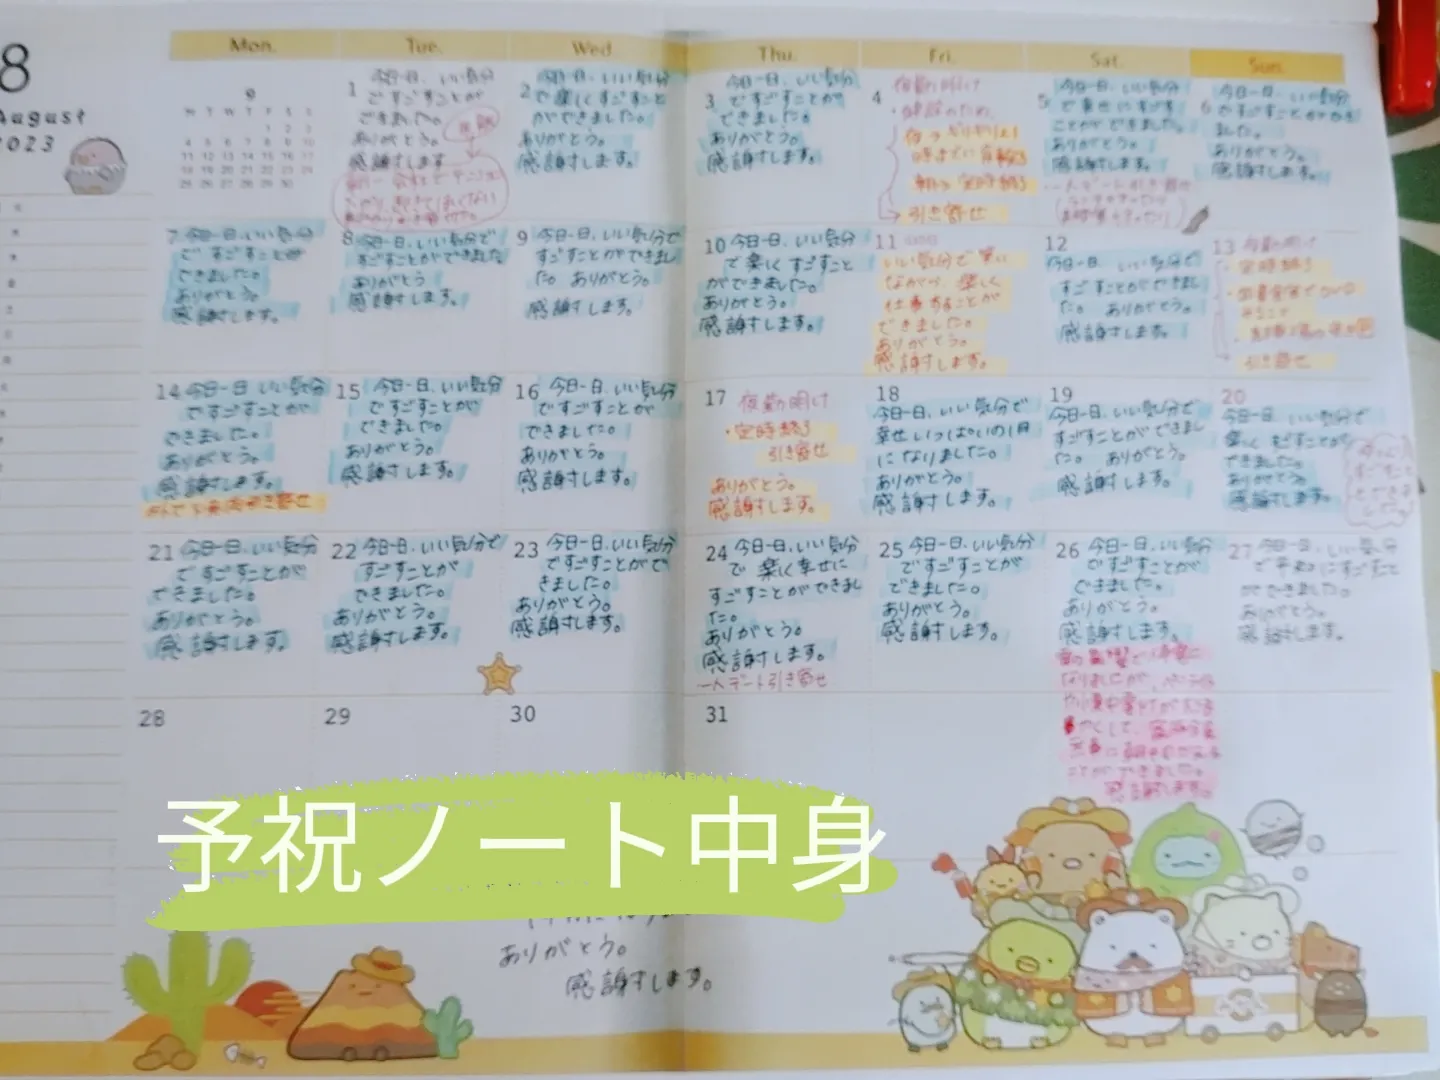 8
August
2023
Mon.
Tue.
Wed.
Thu.
Fri.
Sat.
Sun.
9
M T W T F S S
1 2 3
4 5 6 7 8 9 10
11 12 13 14 15 16 17
18 19 20 21 22 23 24
25 26 27 28 29 30
1 今日一日、いい気分
ですごすことが
できました。
ありがとう。
感謝します
2 今日一日、いい気分
で楽しくすごすこと
ができました。
ありがとう。
感謝します。
3 今日一日、いい気分
ですごすことが
できました。
ありがとう。
感謝します。
4 夜勤明け
引き寄せ
5 今日一日、いい気分
で幸せにすごす
ことができました。
ありがとう。
感謝します。
一人デート引き寄せ
6 今日一日、いい気分
ですごすことができ
ました。
ありがとう。
感謝します。
7 今日一日、いい気分
ですごすことが
できました。
ありがとう。
感謝します。
8 今日一日、いい気分で
すごすことができました
ありがとう
感謝します。
9 今日一日、いい気分で
すごすことができまし
た。ありがとう。
感謝します。
10 今日一日、いい気分
で楽しくすごすこと
ができました。
ありがとう。
感謝します。
11
いい気分で笑い
ながら、楽しく
仕事することが
できました。
ありがとう。
感謝します。
12
今日一日、いい気分で
すごすことができまし
た。ありがとう。
感謝します。
13 夜勤明け
・定時終了
引き寄せ
14 今日一日、いい気分
ですごすことが
できました。
ありがとう。
感謝します。
引き寄せ
15 今日一日、いい気分
ですごすことが
できました。
ありがとう。
感謝します。
16 今日一日、いい気分
ですごすことが
できました。
ありがとう。
感謝します。
17 夜勤明け
・定時終了
引き寄せ
ありがとう。
感謝します。
18
今日一日、いい気分で
幸せいっぱいの1日
になりました。
ありがとう。
感謝します。
19
今日一日、いい気分で
すごすことができまし
た。ありがとう。
感謝します。
20
今日一日、いい気分で
楽しくすごすことが
できました。
ありがとう。
感謝します。
21 今日一日、いい気分
ですごすことが
できました。
ありがとう。
感謝します。
22 今日一日、いい気分で
すごすことが
できました。
ありがとう。
感謝します。
23 今日一日、いい気分
ですごすことがで
きました。
ありがとう。
感謝します。
24 今日一日、いい気分
で楽しく幸せに
すごすことができまし
た。
ありがとう。
感謝します。
一人デート引き寄せ
25 今日一日、いい気分
ですごすことが
できました。
ありがとう。
感謝します。
26 今日一日、いい気分
ですごすことが
できました。
ありがとう。
感謝します。
ことができました。
感謝します。
27 今日一日、いい気分
で平和にすごすこと
ができました。
ありがとう。
感謝します。
28
29
30
31
予祝ノート中身
ありがとう。
感謝します。